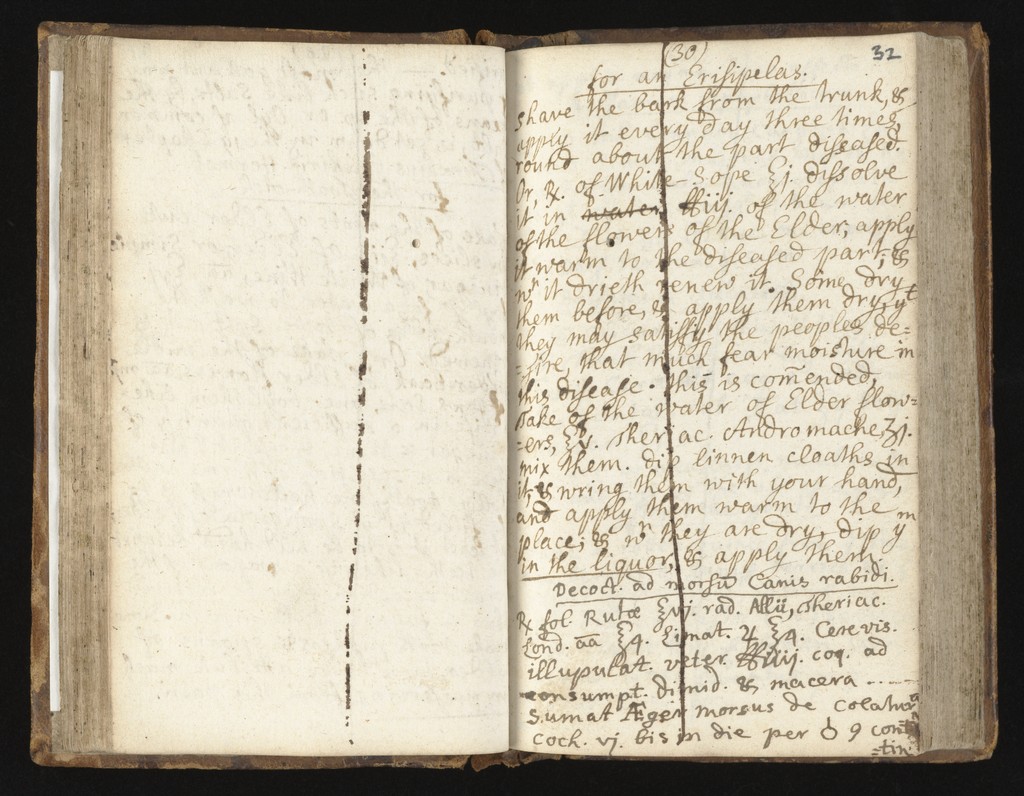 (30)
32
for an Erisipelas.
shave the bark from the trunk, &
apply it every day three times
round about the part diseased.
Or, ℞. of White-Sope ℥j. dissolve
it in water ℔iij. of the water
of the flowers of the Elder, apply
it warm to the diseased part; &
wⁿ it drieth renew it. Some dry
them before, & apply them dry, yᵗ
they may satisfy the peoples de=
=sire, that much fear moisture in
this disease. this is com̄ended,
Take of the water of Elder flow=
=ers, ℥v. theriac. Andromache, ʒj.
mix them. dip linnen cloaths in
it, & wring them with your hand,
and apply them warm to the
place; & wⁿ they are dry, dip yᵐ
in the liquor, & apply them.
Decoct. ad morsū Canis rabidi.
℞ fol. Rutæ ℥vj. rad. Allii, theriac.
Lond. āā ℥4. Limat. ♃ ℥4. Cerevis.
illupulat. veter. ℔iiij. coq. ad
consumpt. dimid. & macera
Sumat Æger morsus de colatura
coch. vj. bis in die per 9 con
=tin: